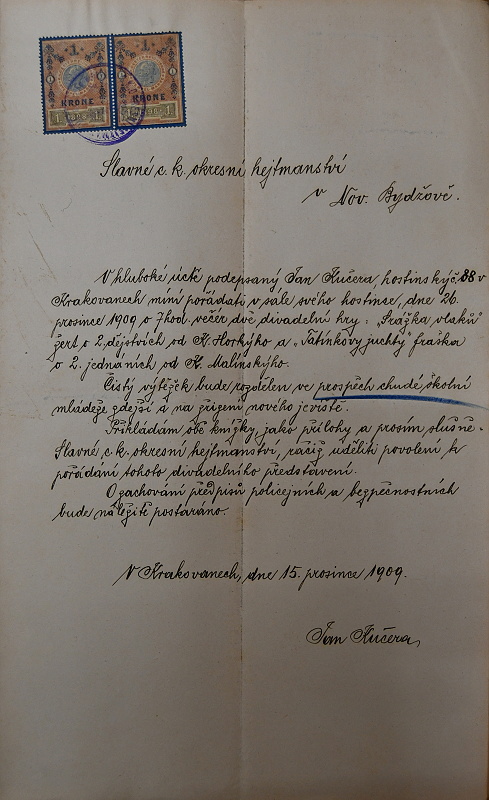 1 1
KRONE KRONE
1 1 1 1
Slavné c. k. okresní hejtmanství
v Nov. Bydžově.
V hluboké úctě podepsaný Jan Kučera, hostinský č. 88 v
Krakovanech míní pořádati v sále svého hostince, dne 26.
prosince 1909 o 7 hod. večer dvě divadelní hry: „Srážka vlaků"
žert o 2. dějstvích od K. Horkýho a „Tatínkovy juchty" fraška
o 2. jednáních od K. Malínskýho.
Čistý výtěžek bude rozdělen ve prospěch chudé školní
mládeže zdejší a na zřízení nového jeviště.
Přikládám obě knížky, jako přílohy a prosím slušně
Slavné c. k. okresní hejtmanství, račiž uděliti povolení k
pořádání tohoto divadelního představení.
O zachování předpisů policejních a bezpečnostních
bude náležitě postaráno.
V Krakovanech, dne 15. prosince 1909.
Jan Kučera,